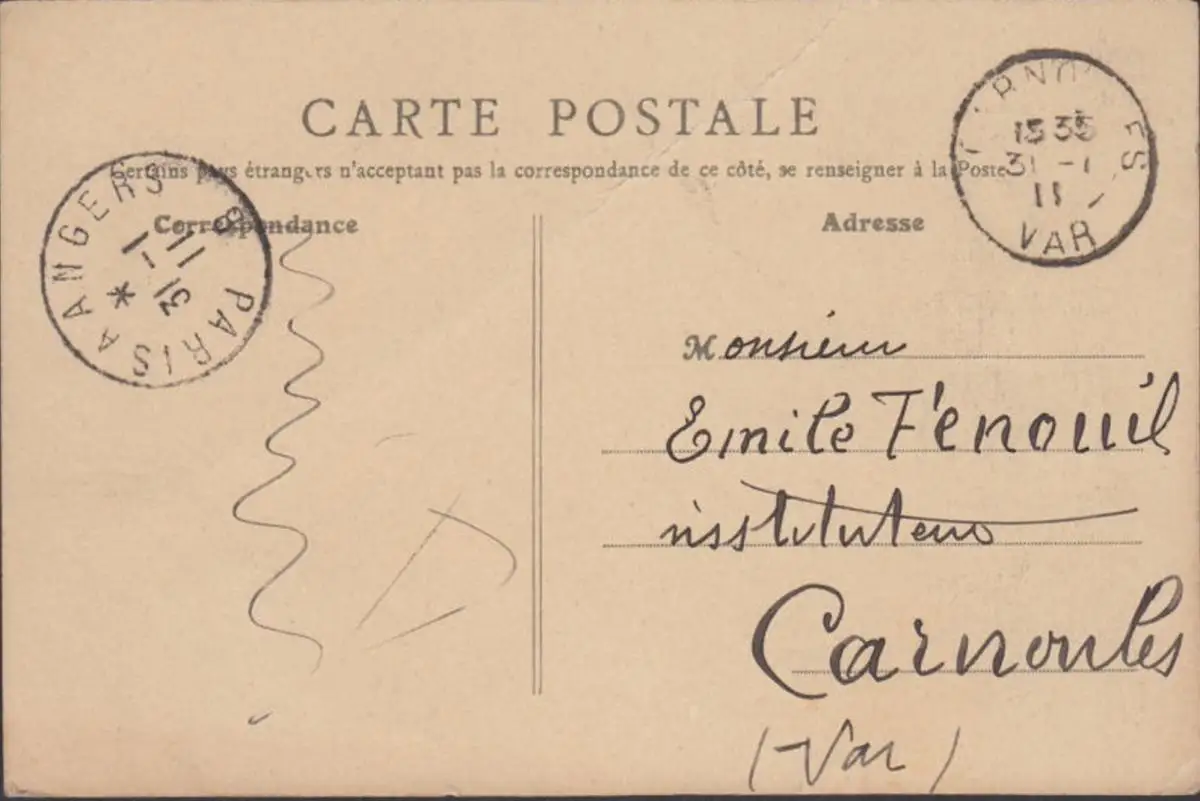 CARTE POSTALE
Certains pays étrangers n'acceptant pas la correspondance de ce côté, se renseigner à la Poste
Correspondance
Adresse
PARIS A ANGERS
31 -1
11
15 35
31 -1
11
VAR
Monsieur
Emile Fénouil
instituteur
Carnoules
(Var)